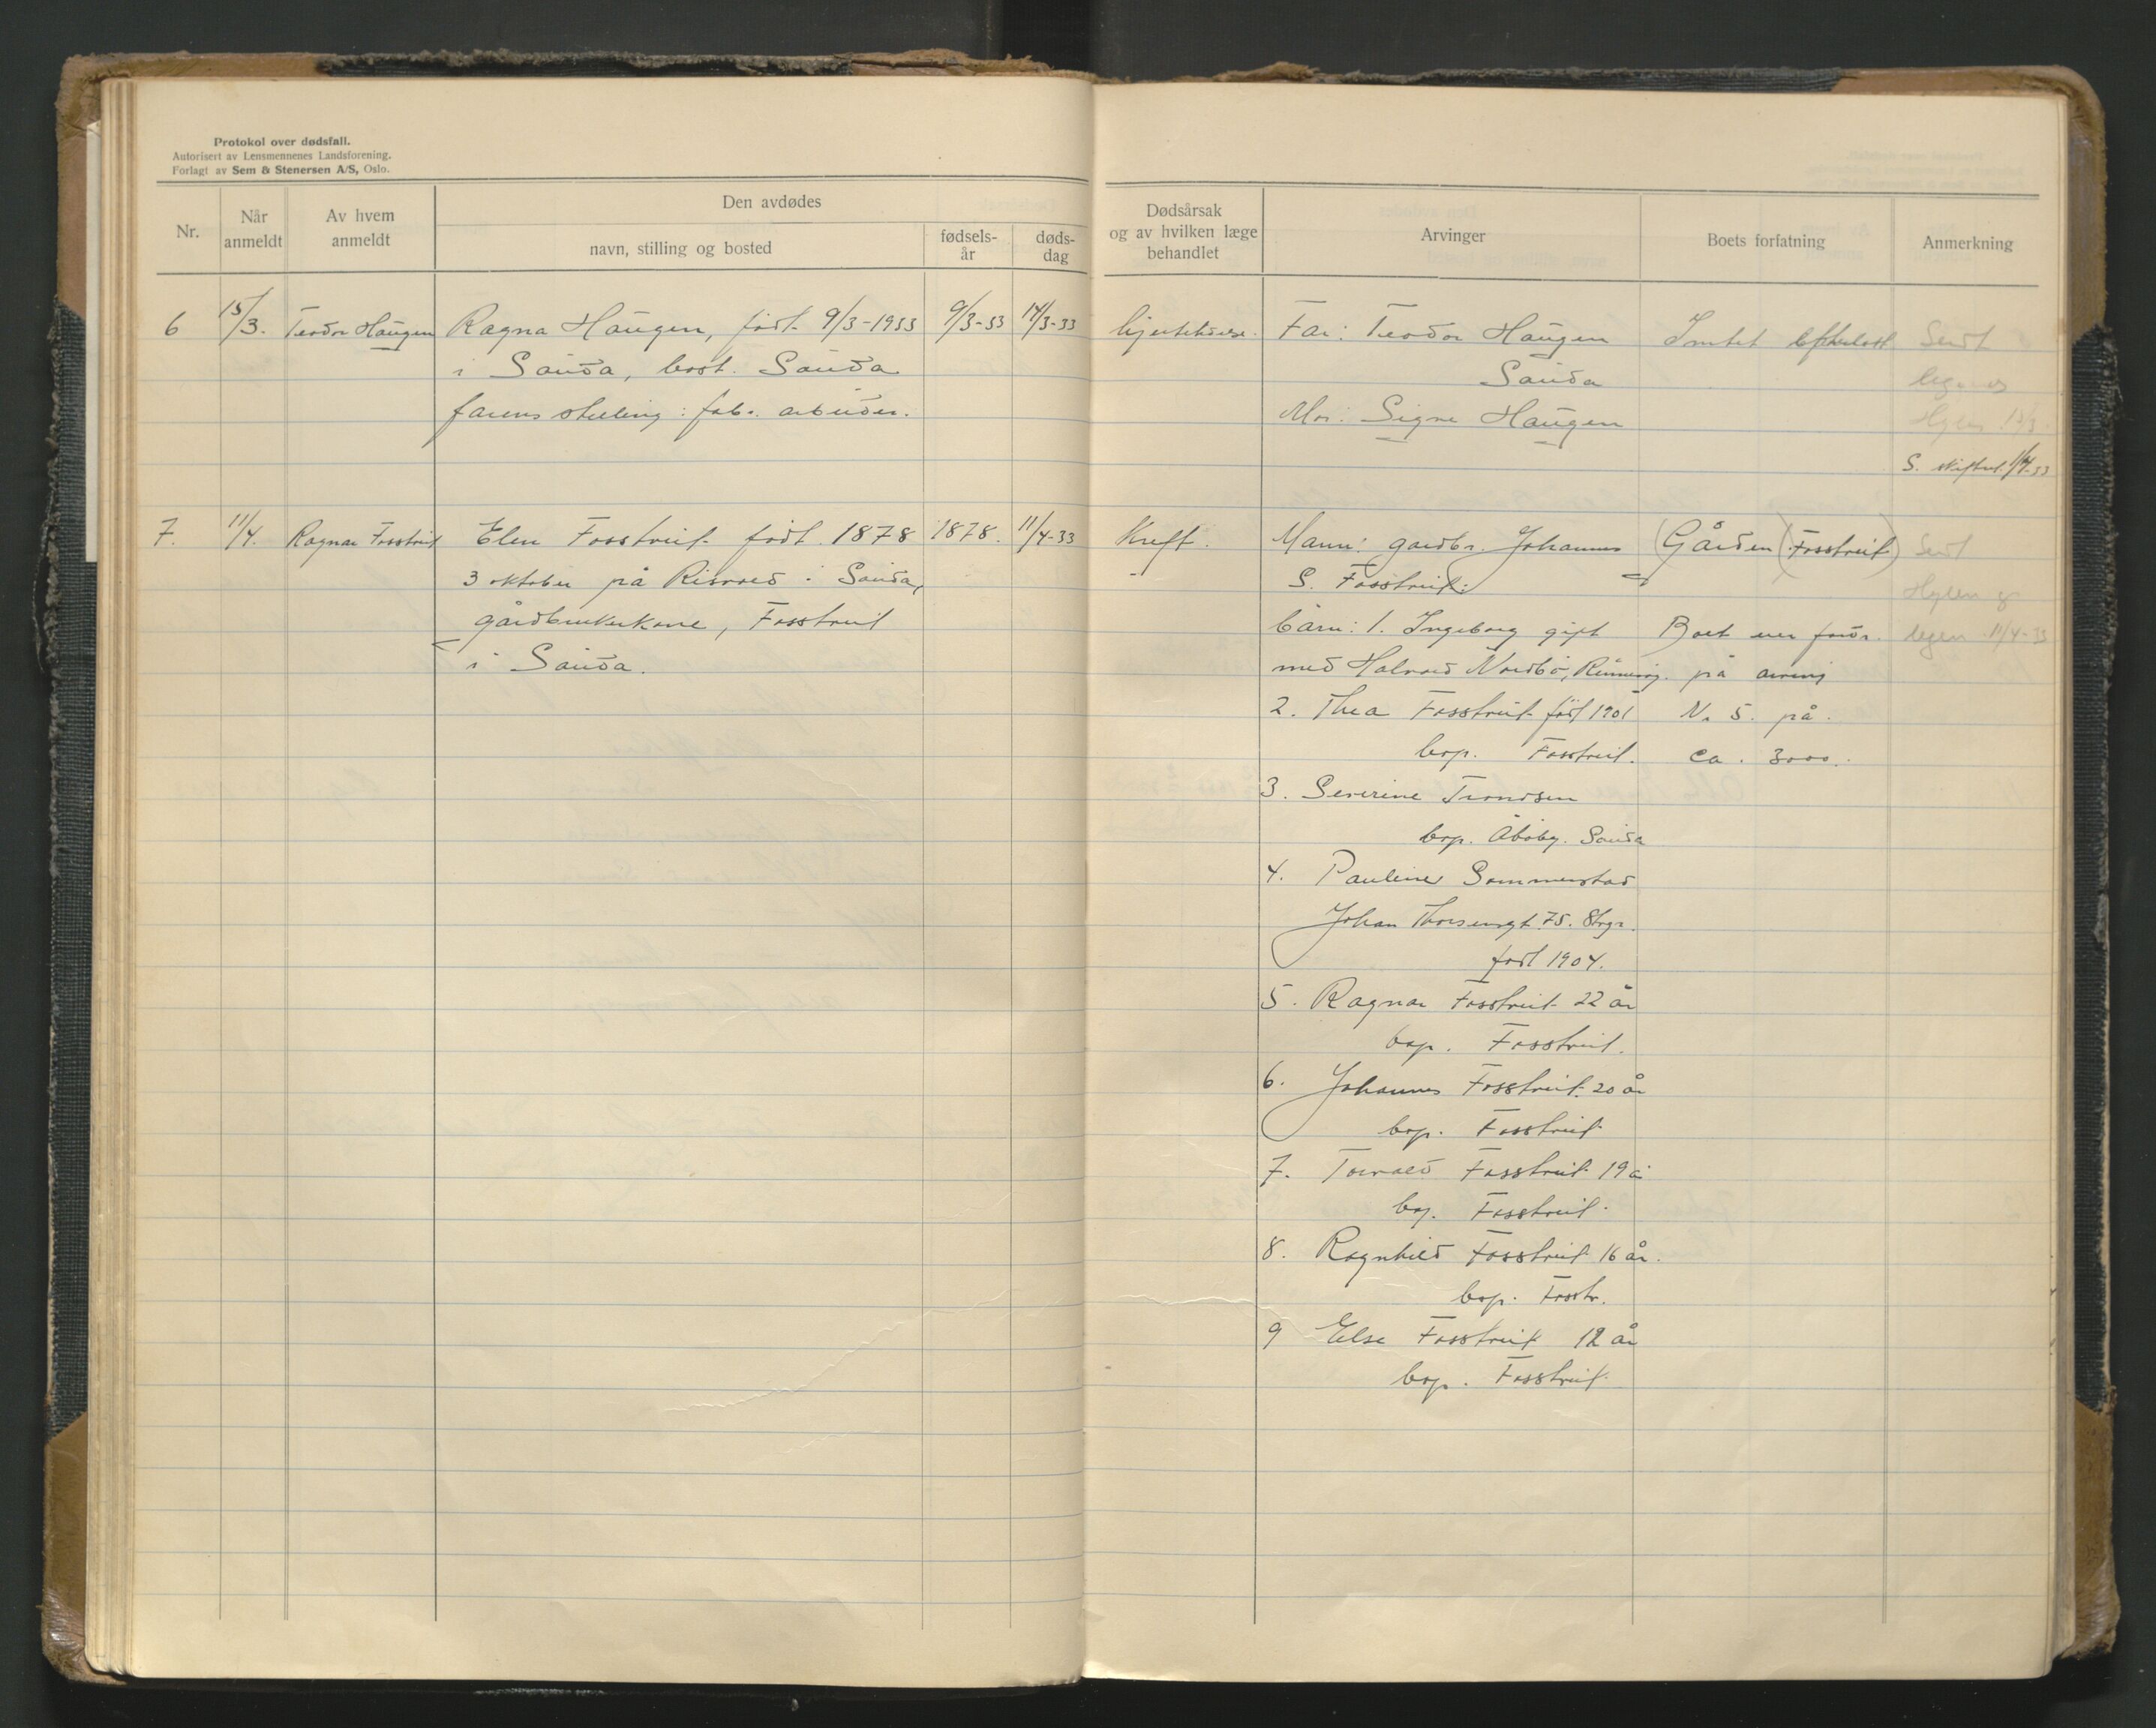 Protokol over dødsfall.
Autorisert av Lensmennenes Landsforening.
Forlagt av Sem & Stenersen A/S, Oslo.
Nr.
Når anmeldt
Av hvem anmeldt
Den avdødes
navn, stilling og bosted
fødsels-
år
døds-
dag
Dødsårsak
og av hvilken læge
behandlet
Arvinger
Boets forfatning
Anmerkning
6 15/3. Teodor Haugen Ragna Haugen, født 9/3-1933 9/3-33 14/3-33
i Sauda, bost. Sauda
farens stilling: fab. arbeider.
Far: Teodor Haugen Intet efterlatt Sendt
Sauda
Mor: Signe Haugen Hylen 15/3
S. skifter. 1/4-33
7. 11/4. Ragnar Fosstveit Elen Fosstveit født 1878 1878. 11/4-33
3 oktober på Risvold i Sauda,
gårdbrukerkone, Fosstveit
i Sauda.
Kreft. Mann: gardbr. Johannes (Gården (Fosstveit) Sendt
S. Fosstveit. Hylen og
barn: 1. Ingeborg gift Boet er fordr. legen 11/4-33
med Halvard Nordbø, på arving
2. Thea Fosstveit født 1901 Nr 5. på
bop. Fosstveit. ca. 3000.
3. Severine Trondsen
bop. Åbøby. Sauda
4. Pauline Sommerstad
Johan Thorsensgt. 75. Stvgr.
født 1904.
5. Ragnar Fosstveit 22 år
bop. Fosstveit.
6. Johannes Fosstveit 20 år
bop. Fosstveit
7. Torvald Fosstveit 19 å
bop. Fosstveit.
8. Ragnhild Fosstveit 16 år.
bop. Fosstv.
9 Else Fosstveit 12 år
bop. Fosstveit